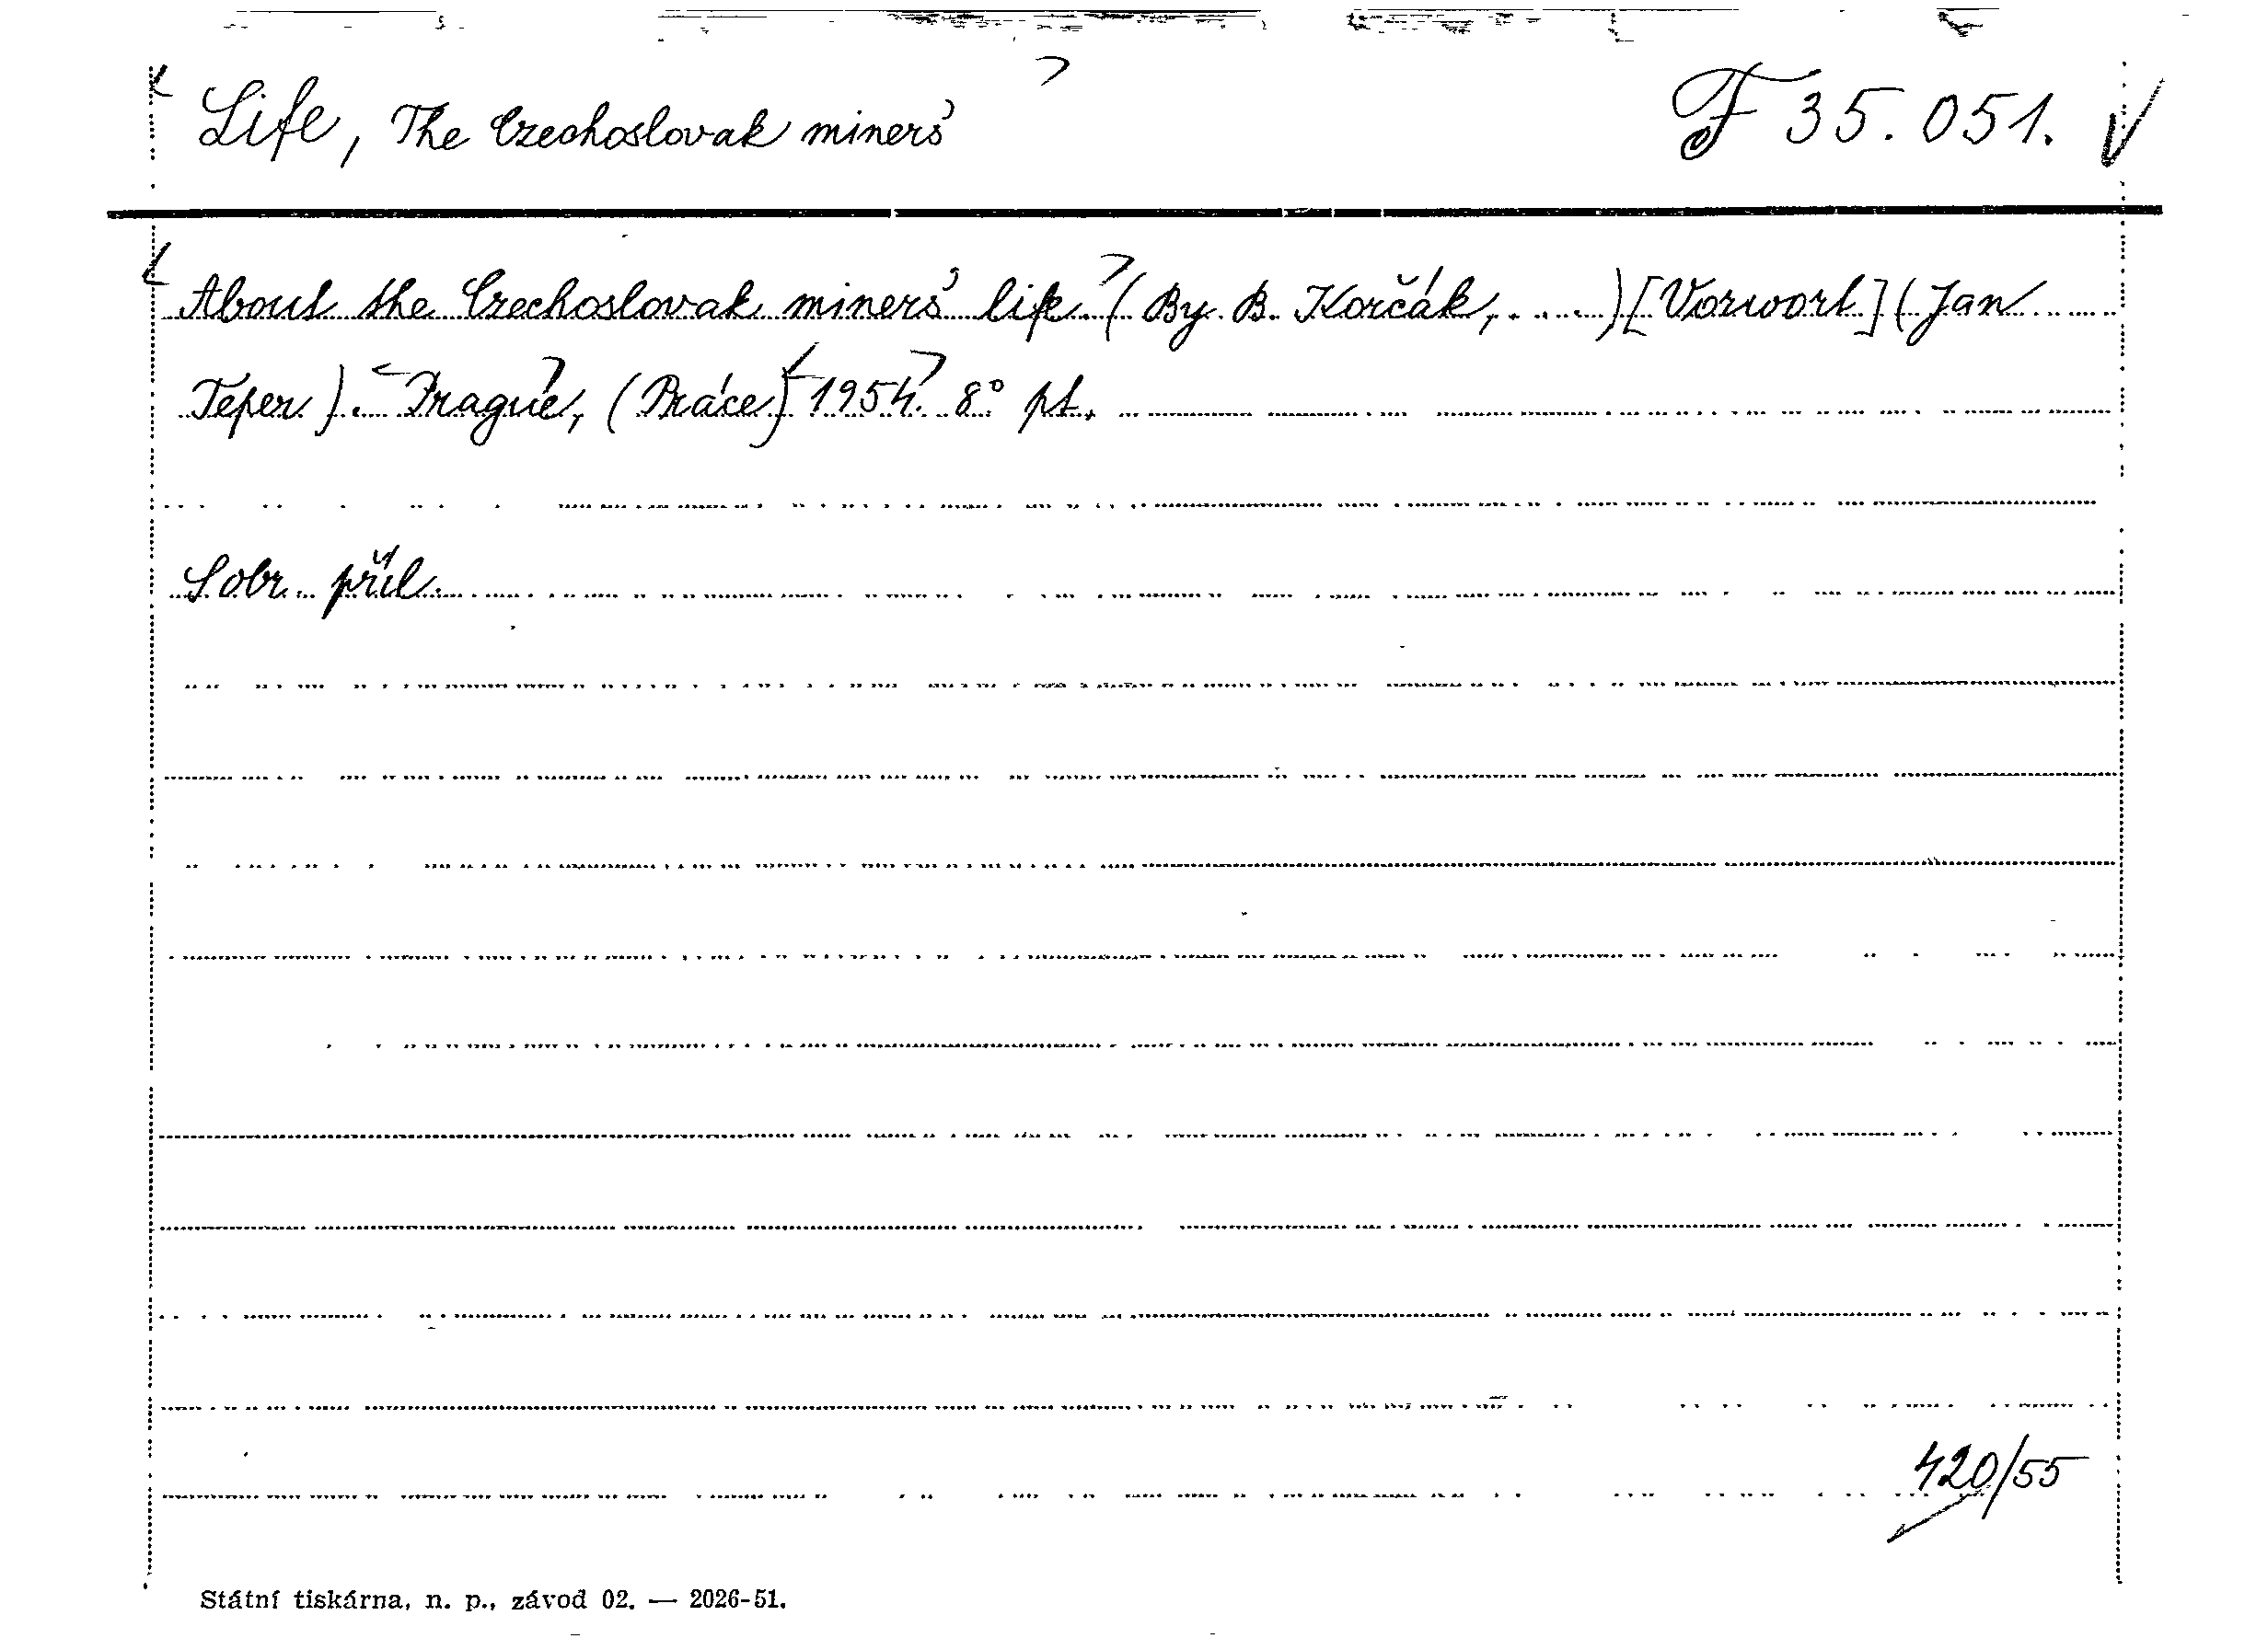 Life, The Czechoslovak miners' F 35.051.
About the Czechoslovak miners' life. (By B. Korčák, .....) [Vorwort] (Jan
Teper). Prague, (Práce) 1954. 8° pt.
S obr. příl.
420/55
Státní tiskárna, n. p., závod 02. — 2026-51.